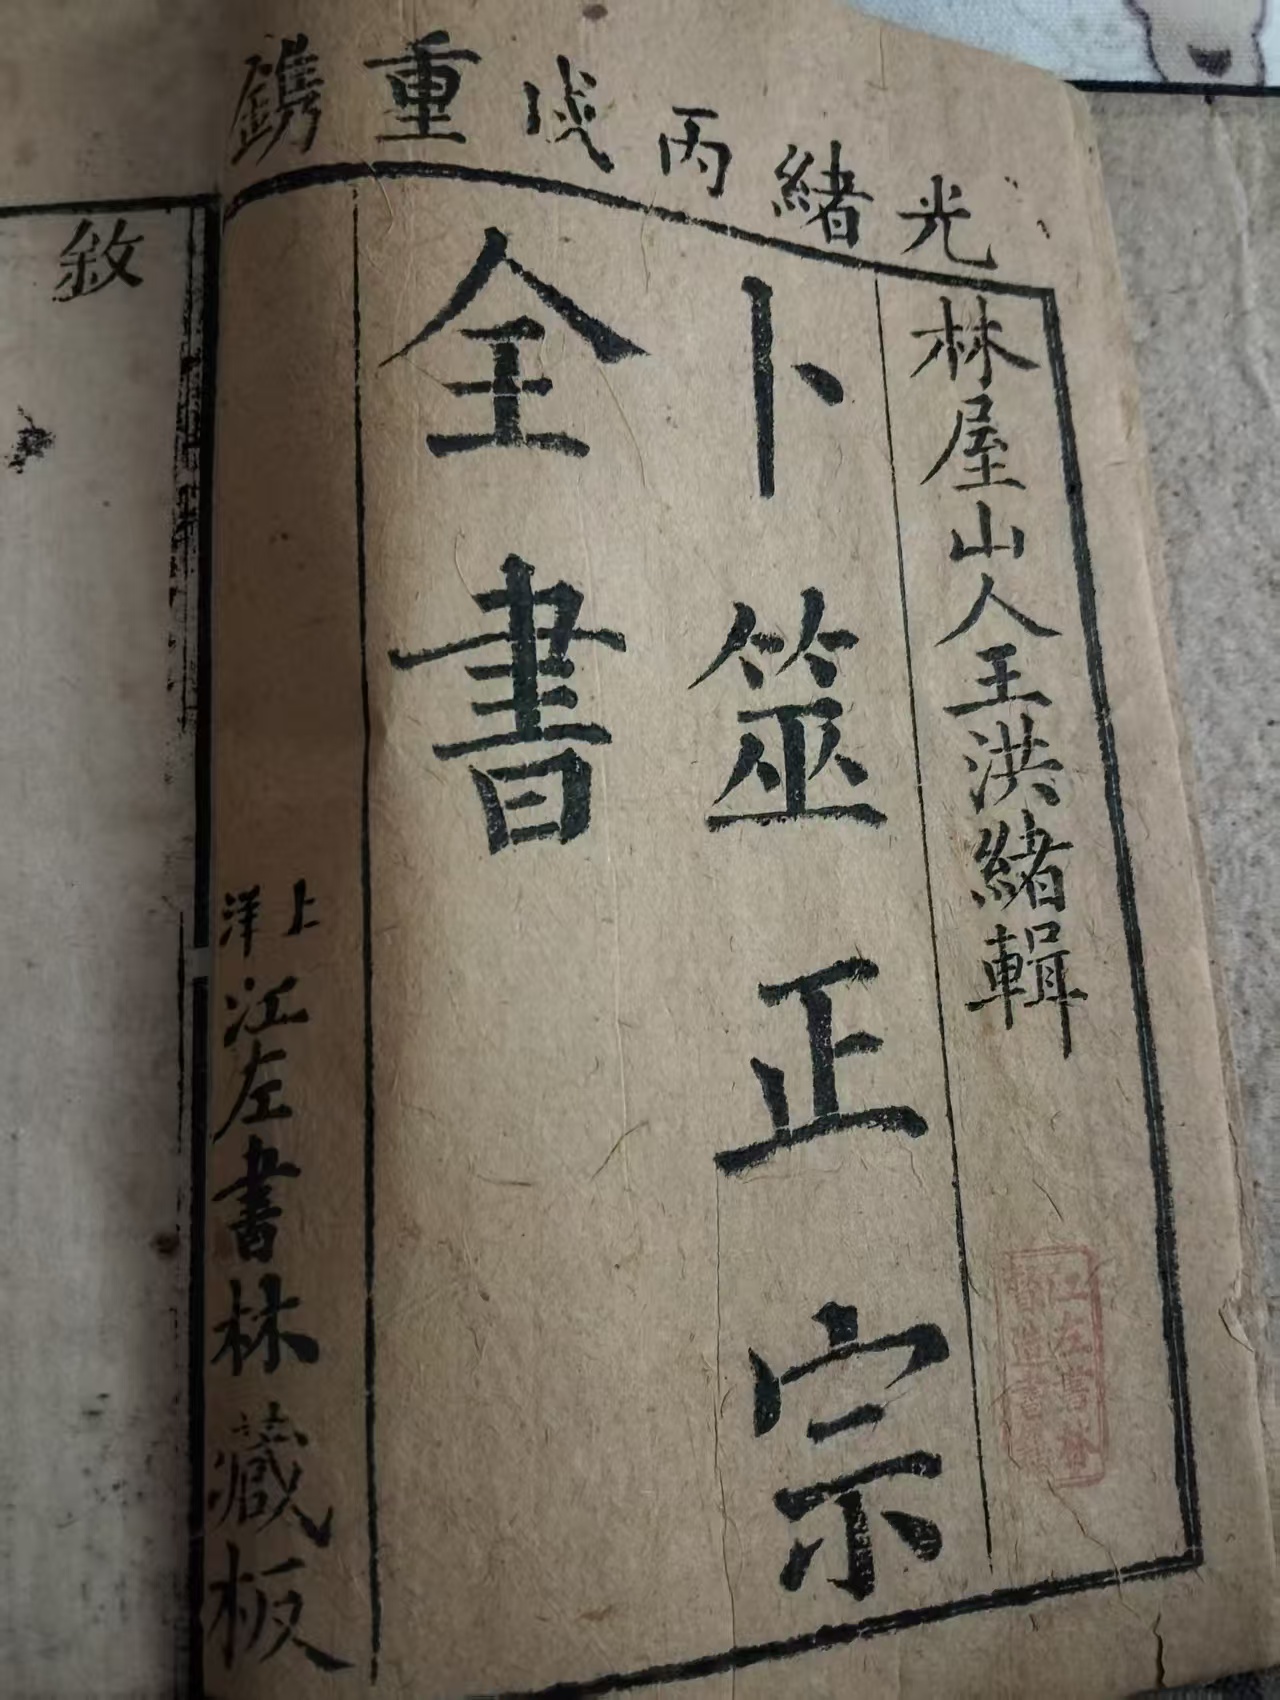 光緒丙戌重鐫
林屋山人王洪緒輯
卜筮正宗
全書
上洋江左書林藏板
敘
江左書林